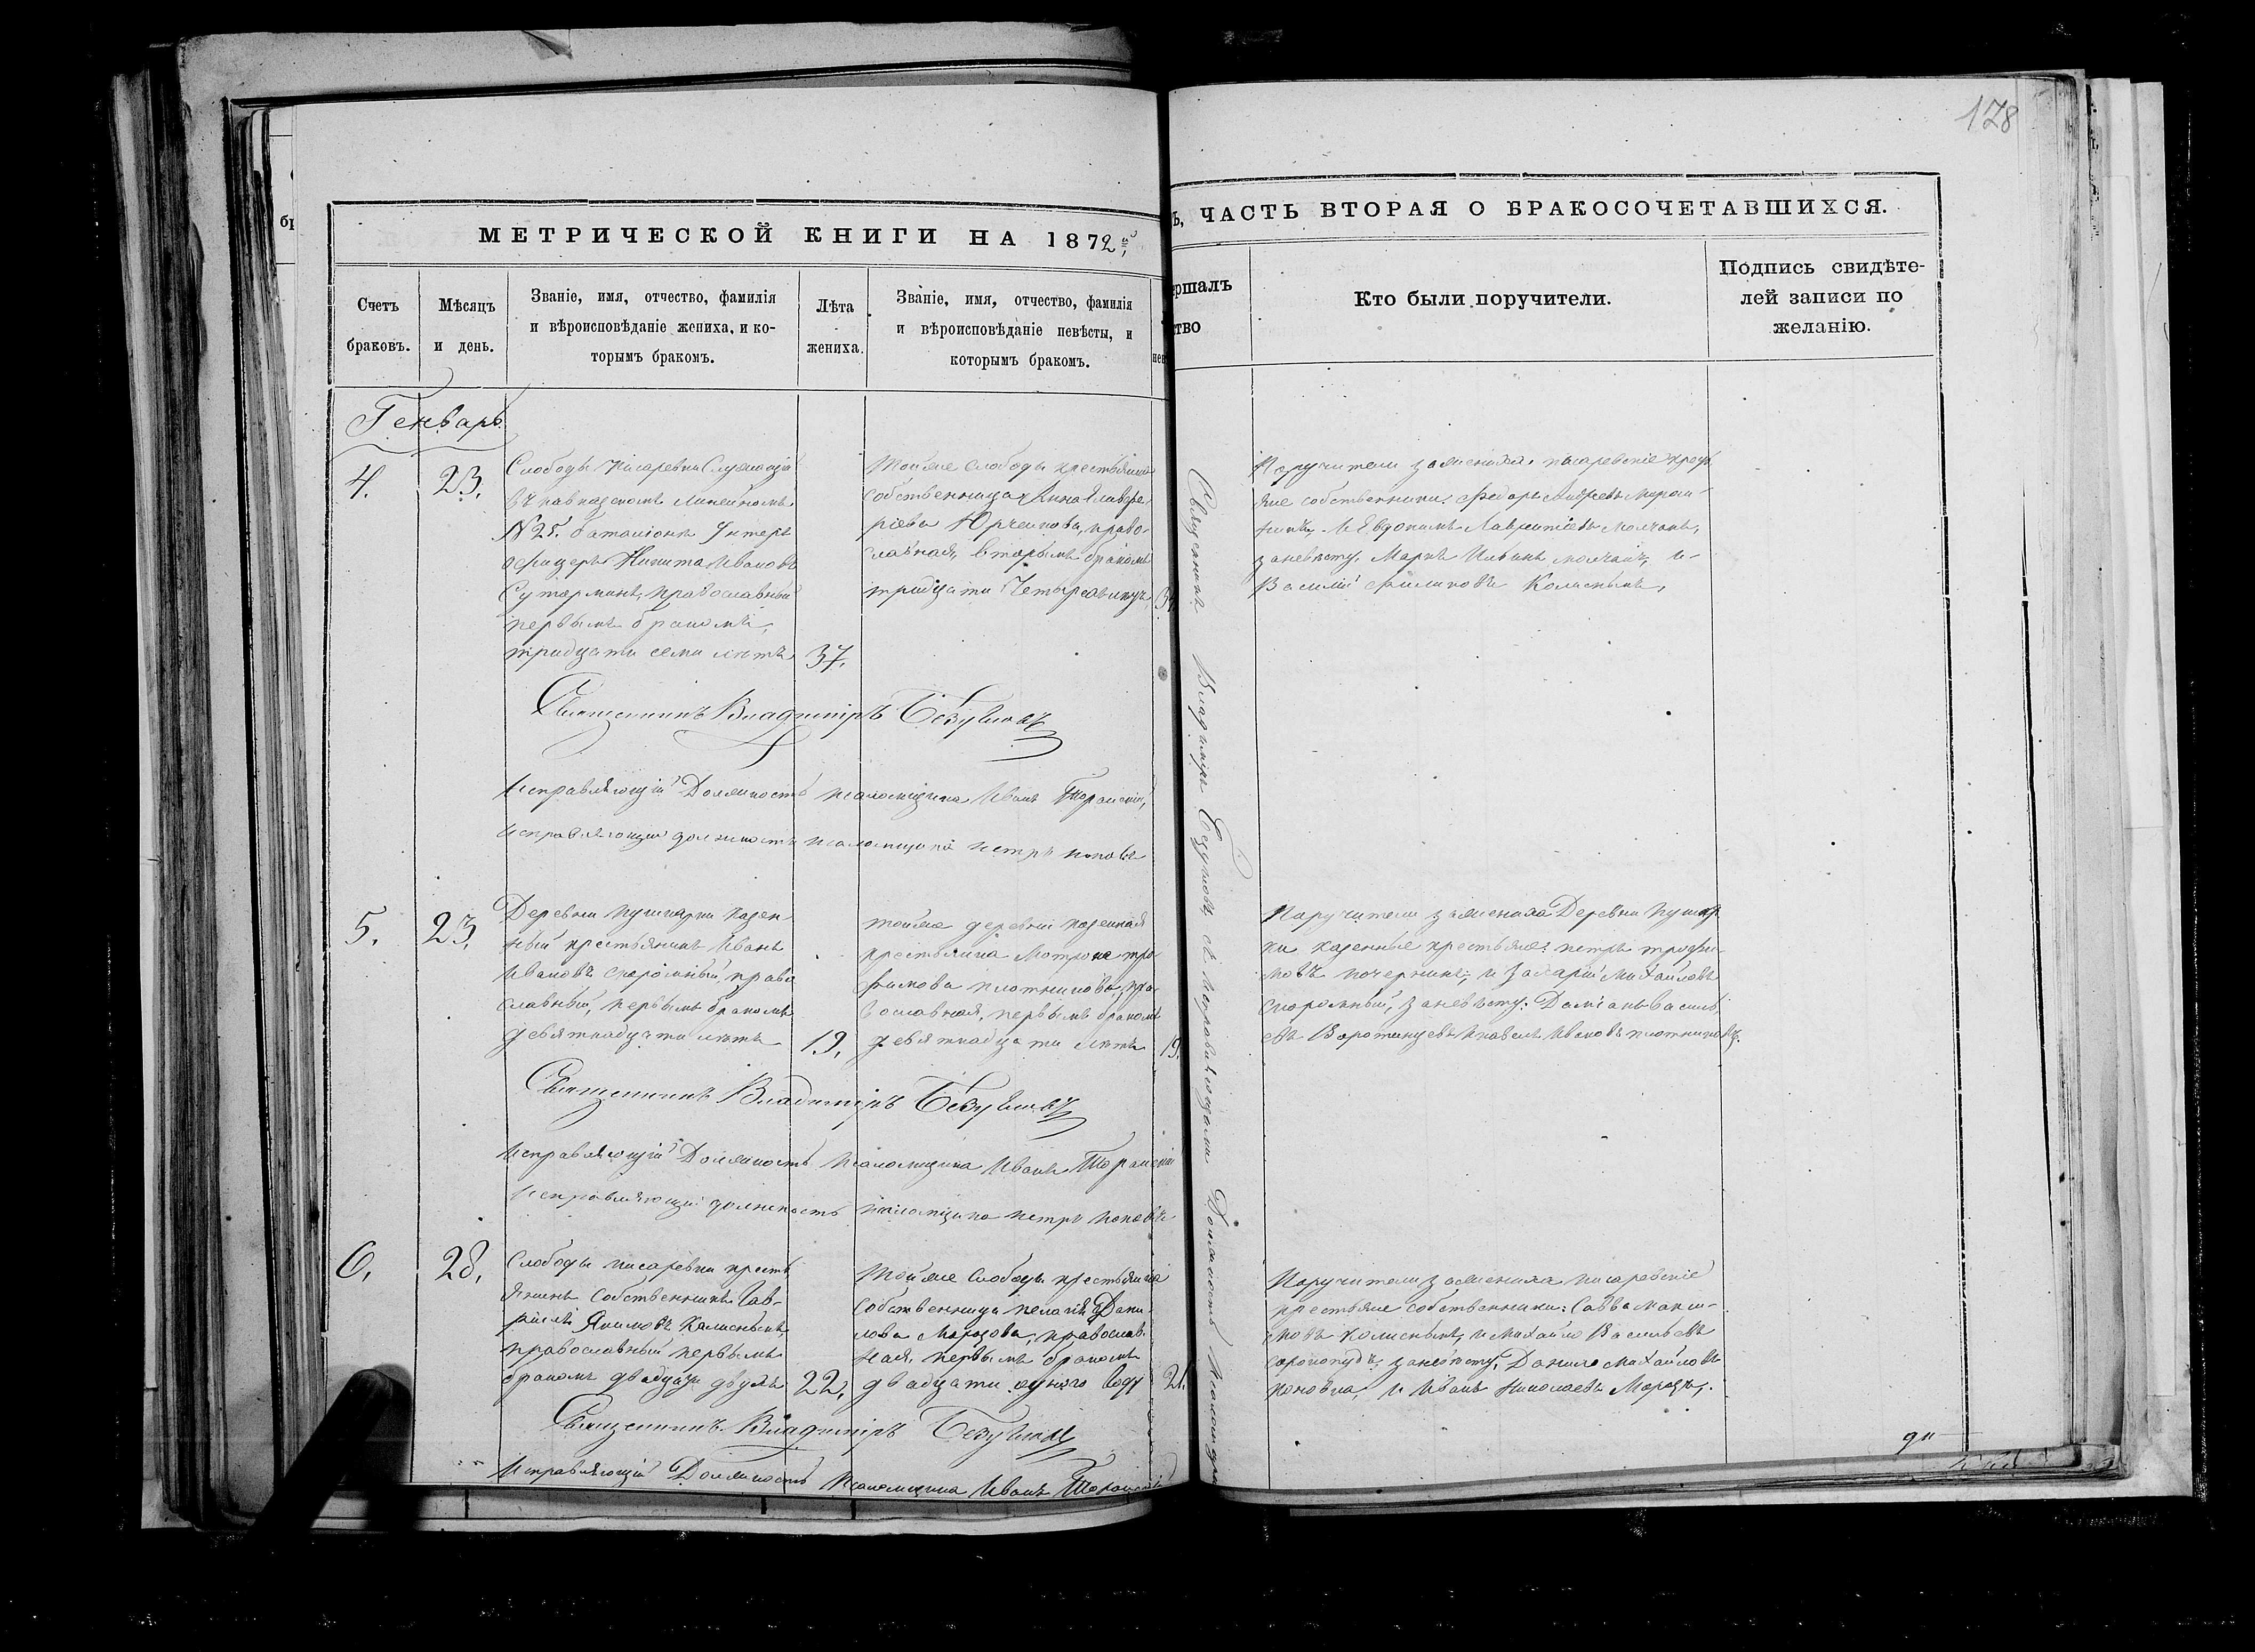 178
МЕТРИЧЕСКОЙ КНИГИ НА 1872й
Ъ, ЧАСТЬ ВТОРАЯ О БРАКОСОЧЕТАВШИХСЯ.
Счетъ
браковъ.
Мѣсяцъ
и день.
Званіе, имя, отчество, фамилія
и вѣроисповѣданіе жениха, и ко-
торымъ бракомъ.
Лѣта
жениха.
Званіе, имя, отчество, фамилія
и вѣроисповѣданіе невѣсты, и
которымъ бракомъ.
нев
ершалъ
тво
Кто были поручители.
Подпись свидѣте-
лей записи по
желанію.
Генварь
4.
23.
Слободы Писаревки Служащій
въ кавказскомъ линейномъ
№ 25. баталіонѣ Унтеръ
офицеръ Никита Ивановъ
православный
первымъ бракомъ,
тридцати семи лѣтъ
37.
Тойже слободы крестьянка
собственница Анна
Юрченкова, право-
славная, вторымъ бракомъ
тридцати четырехъ
Поручители по женихѣ писаревскіе кресть
яне собственники: Федоръ Андреевъ
и Евдокимъ Лаврентіевъ Молчанъ,
за невѣсту. Маркъ Ильинъ Молчанъ, и
Василій Филиповъ Колисныкъ,
Священникъ Владиміръ
Исправляющій Должность псаломщика Иванъ
исправляющій должность псаломщика Петръ Поповъ
5.
23.
Деревни Пушкарки казен
ный крестьянинъ Иванъ
Ивановъ Скоромный, право
славный, первымъ бракомъ
девятнадцати лѣтъ
19.
тойже деревни казенная
крестьянка Мотрона Тро-
фимова Плотникова, пра-
вославная, первымъ бракомъ
девятнадцати лѣтъ
19.
Поручители по женихѣ Деревни Пушкар
ки казенные крестьяне: Петръ Трофи-
мовъ и Захарій Михайловъ
Скоромный, за невѣсту: Даміанъ Василь
евъ Воротинцевъ и Павелъ Ивановъ Плотниковъ.
Священникъ Владиміръ
Исправляющій Должность псаломщика Иванъ
Исправляющій должность псаломщика Петръ Поповъ
6.
28.
Слободы Писаревки кресть
янинъ собственникъ Гав-
ріилъ Якимовъ Колисныкъ,
православный первымъ
бракомъ двадцати двухъ
22.
Тойже Слободы крестьянка
собственница Пелагія Дани-
лова Морозова, православ-
ная, первымъ бракомъ
двадцати одного году
21.
Поручители по женихѣ писаревскіе
крестьяне собственники: Савва Макси-
мовъ Колисныкъ, и Михайло Васильевъ
Сорокопудъ, за невѣсту, Данило Михайловъ
и Иванъ Николаевъ Морозъ,.
Священникъ Владиміръ
Исправляющій Должность псаломщика Иванъ
Священникъ Владиміръ
Должность